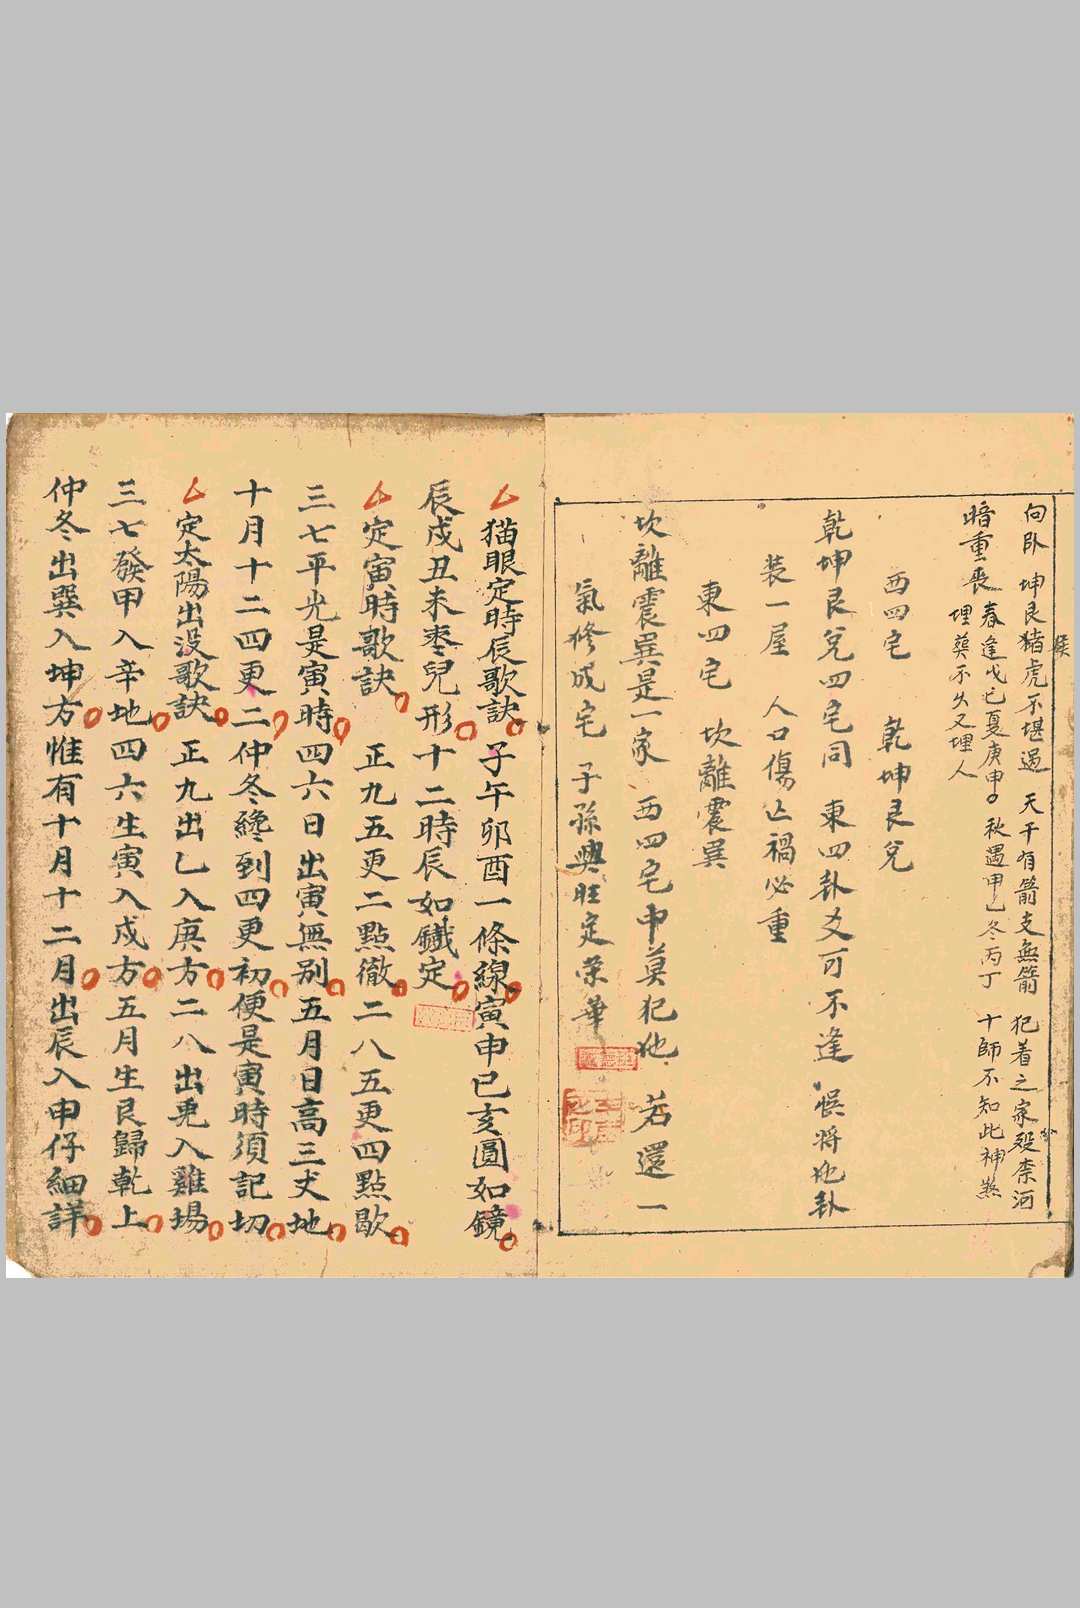 向卧 坤艮猪虎不堪過 天干有箭支無箭 犯着之家殁柰河
暗重丧 春逢戊己夏庚申 秋遇甲乙冬丙丁 十師不知此神煞
埋葬不久又埋人
西四宅 乾坤艮兌
乾坤艮兌四宅同 東四卦爻可不逢 悮将他卦
装一屋 人口傷亡禍必重
東四宅 坎離震巽
坎離震巽是一家 西四宅中莫犯他 若還一
氣修成宅 子孫興旺定荣華
猫眼定時辰歌訣 子午卯酉一條線寅申已亥圓如鏡
辰戌丑未枣兒形十二時辰如鐵定
定寅時歌訣 正九五更二點徹二八五更四點歇
三七平光是寅時四六日出寅無别五月日高三丈地
十月十二四更二仲冬纔到四更初便是寅時須記切
定太陽出没歌訣 正九出乙入庚方二八出兎入雞場
三七發甲入辛地四六生寅入戌方五月生艮歸乾上
仲冬出巽入坤方惟有十月十二月出辰入申仔細詳